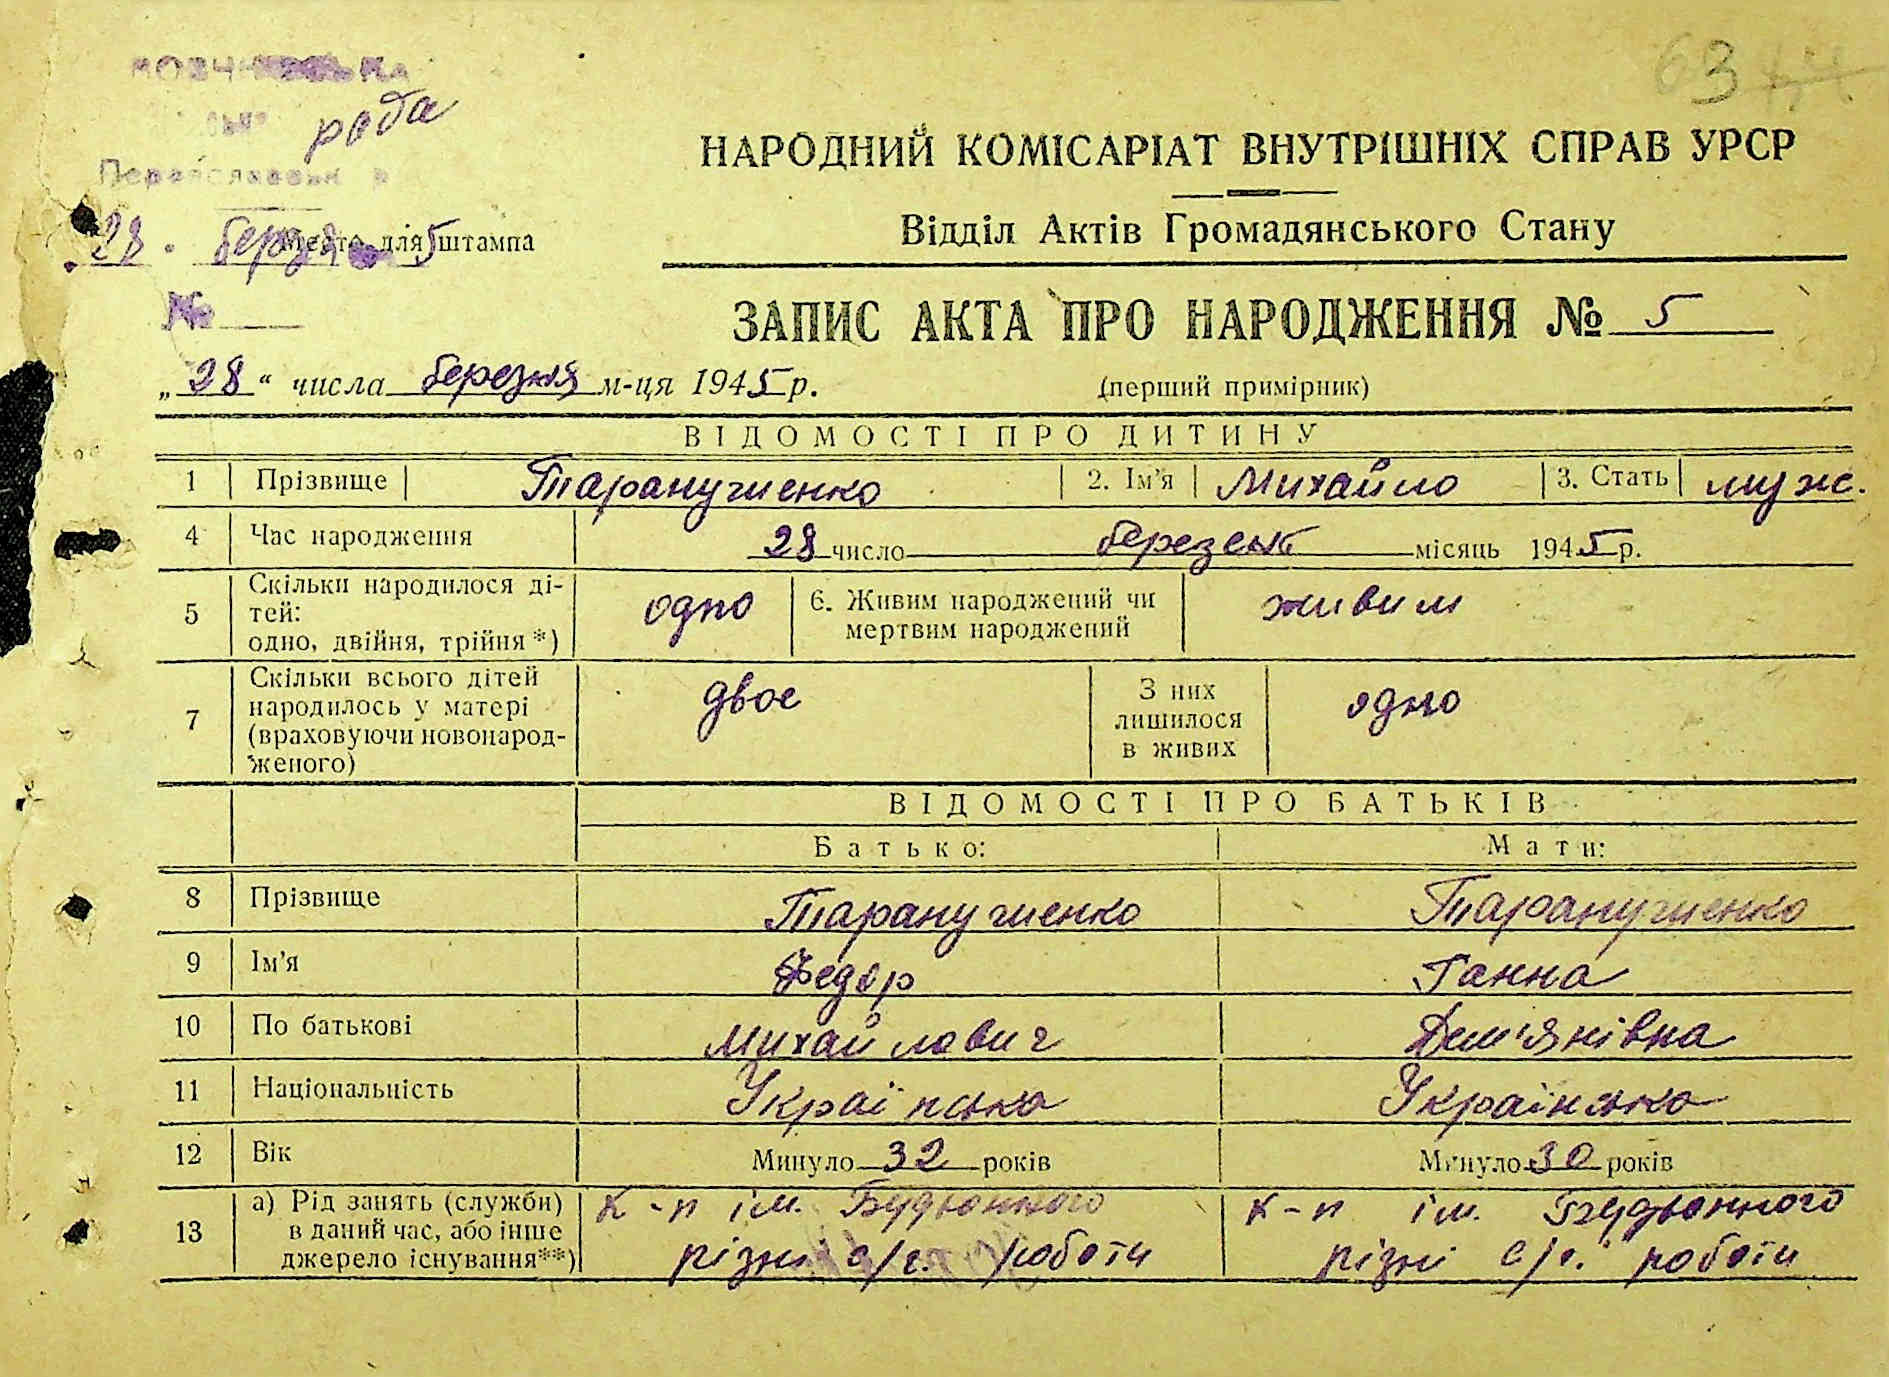 63
рада
28 берез 5
Место для штампа
№
НАРОДНИЙ КОМІСАРІАТ ВНУТРІШНІХ СПРАВ УРСР
Відділ Актів Громадянського Стану
ЗАПИС АКТА ПРО НАРОДЖЕННЯ № 5
„28“ числа березня м-ця 1945 р. (перший примірник)
ВІДОМОСТІ ПРО ДИТИНУ
1 Прізвище Таранушенко 2. Ім'я Михайло 3. Стать муж.
4 Час народження 28 число березень місяць 1945 р.
5 Скільки народилося ді-
тей:
одно, двійня, трійня *) одно 6. Живим народжений чи
мертвим народжений живим
7 Скільки всього дітей
народилось у матері
(враховуючи новонарод-
женого) двое З них
лишилося
в живих одно
ВІДОМОСТІ ПРО БАТЬКІВ
Батько: Мати:
8 Прізвище Таранушенко Таранушенко
9 Ім'я Федор Ганна
10 По батькові Михайлович Дем'янівна
11 Національність Українська Українська
12 Вік Минуло 32 років Минуло 30 років
13 а) Рід занять (служби)
в даний час, або інше
джерело існування**) к-п ім. Будьонного
різні с/г. роботи к-п ім. Будьонного
різні с/г. роботи